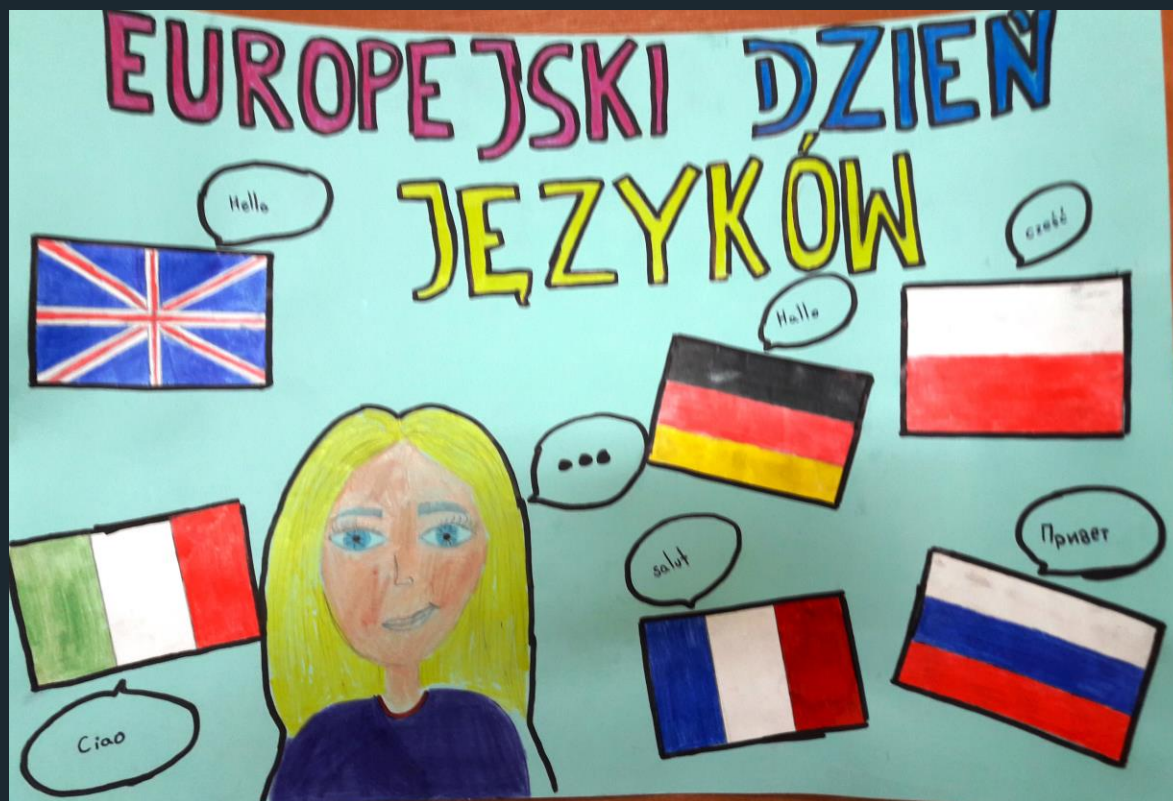 EUROPEJSKI DZIEŃ
JĘZYKÓW
Hello
cześć
Hallo
...
salut
Привет
Ciao